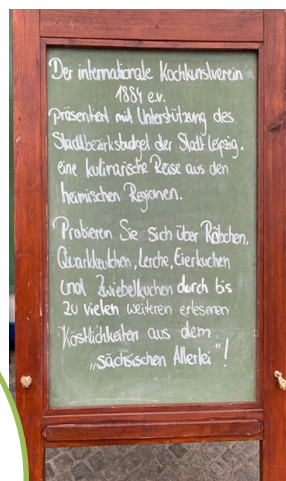 Der internationale Kochkunstverein
1884 e.V.
präsentiert mit Unterstützung des
Stadtbezirksbudget der Stadt Leipzig.
eine kulinarische Reise aus den
heimischen Regionen.
Probieren Sie sich über Räbchen,
Quarkkeulchen, Lerche, Eierkuchen
und Zwiebelkuchen durch bis
zu vielen weiteren erlesenen
Köstlichkeiten aus dem
"sächsischen Allerlei"!